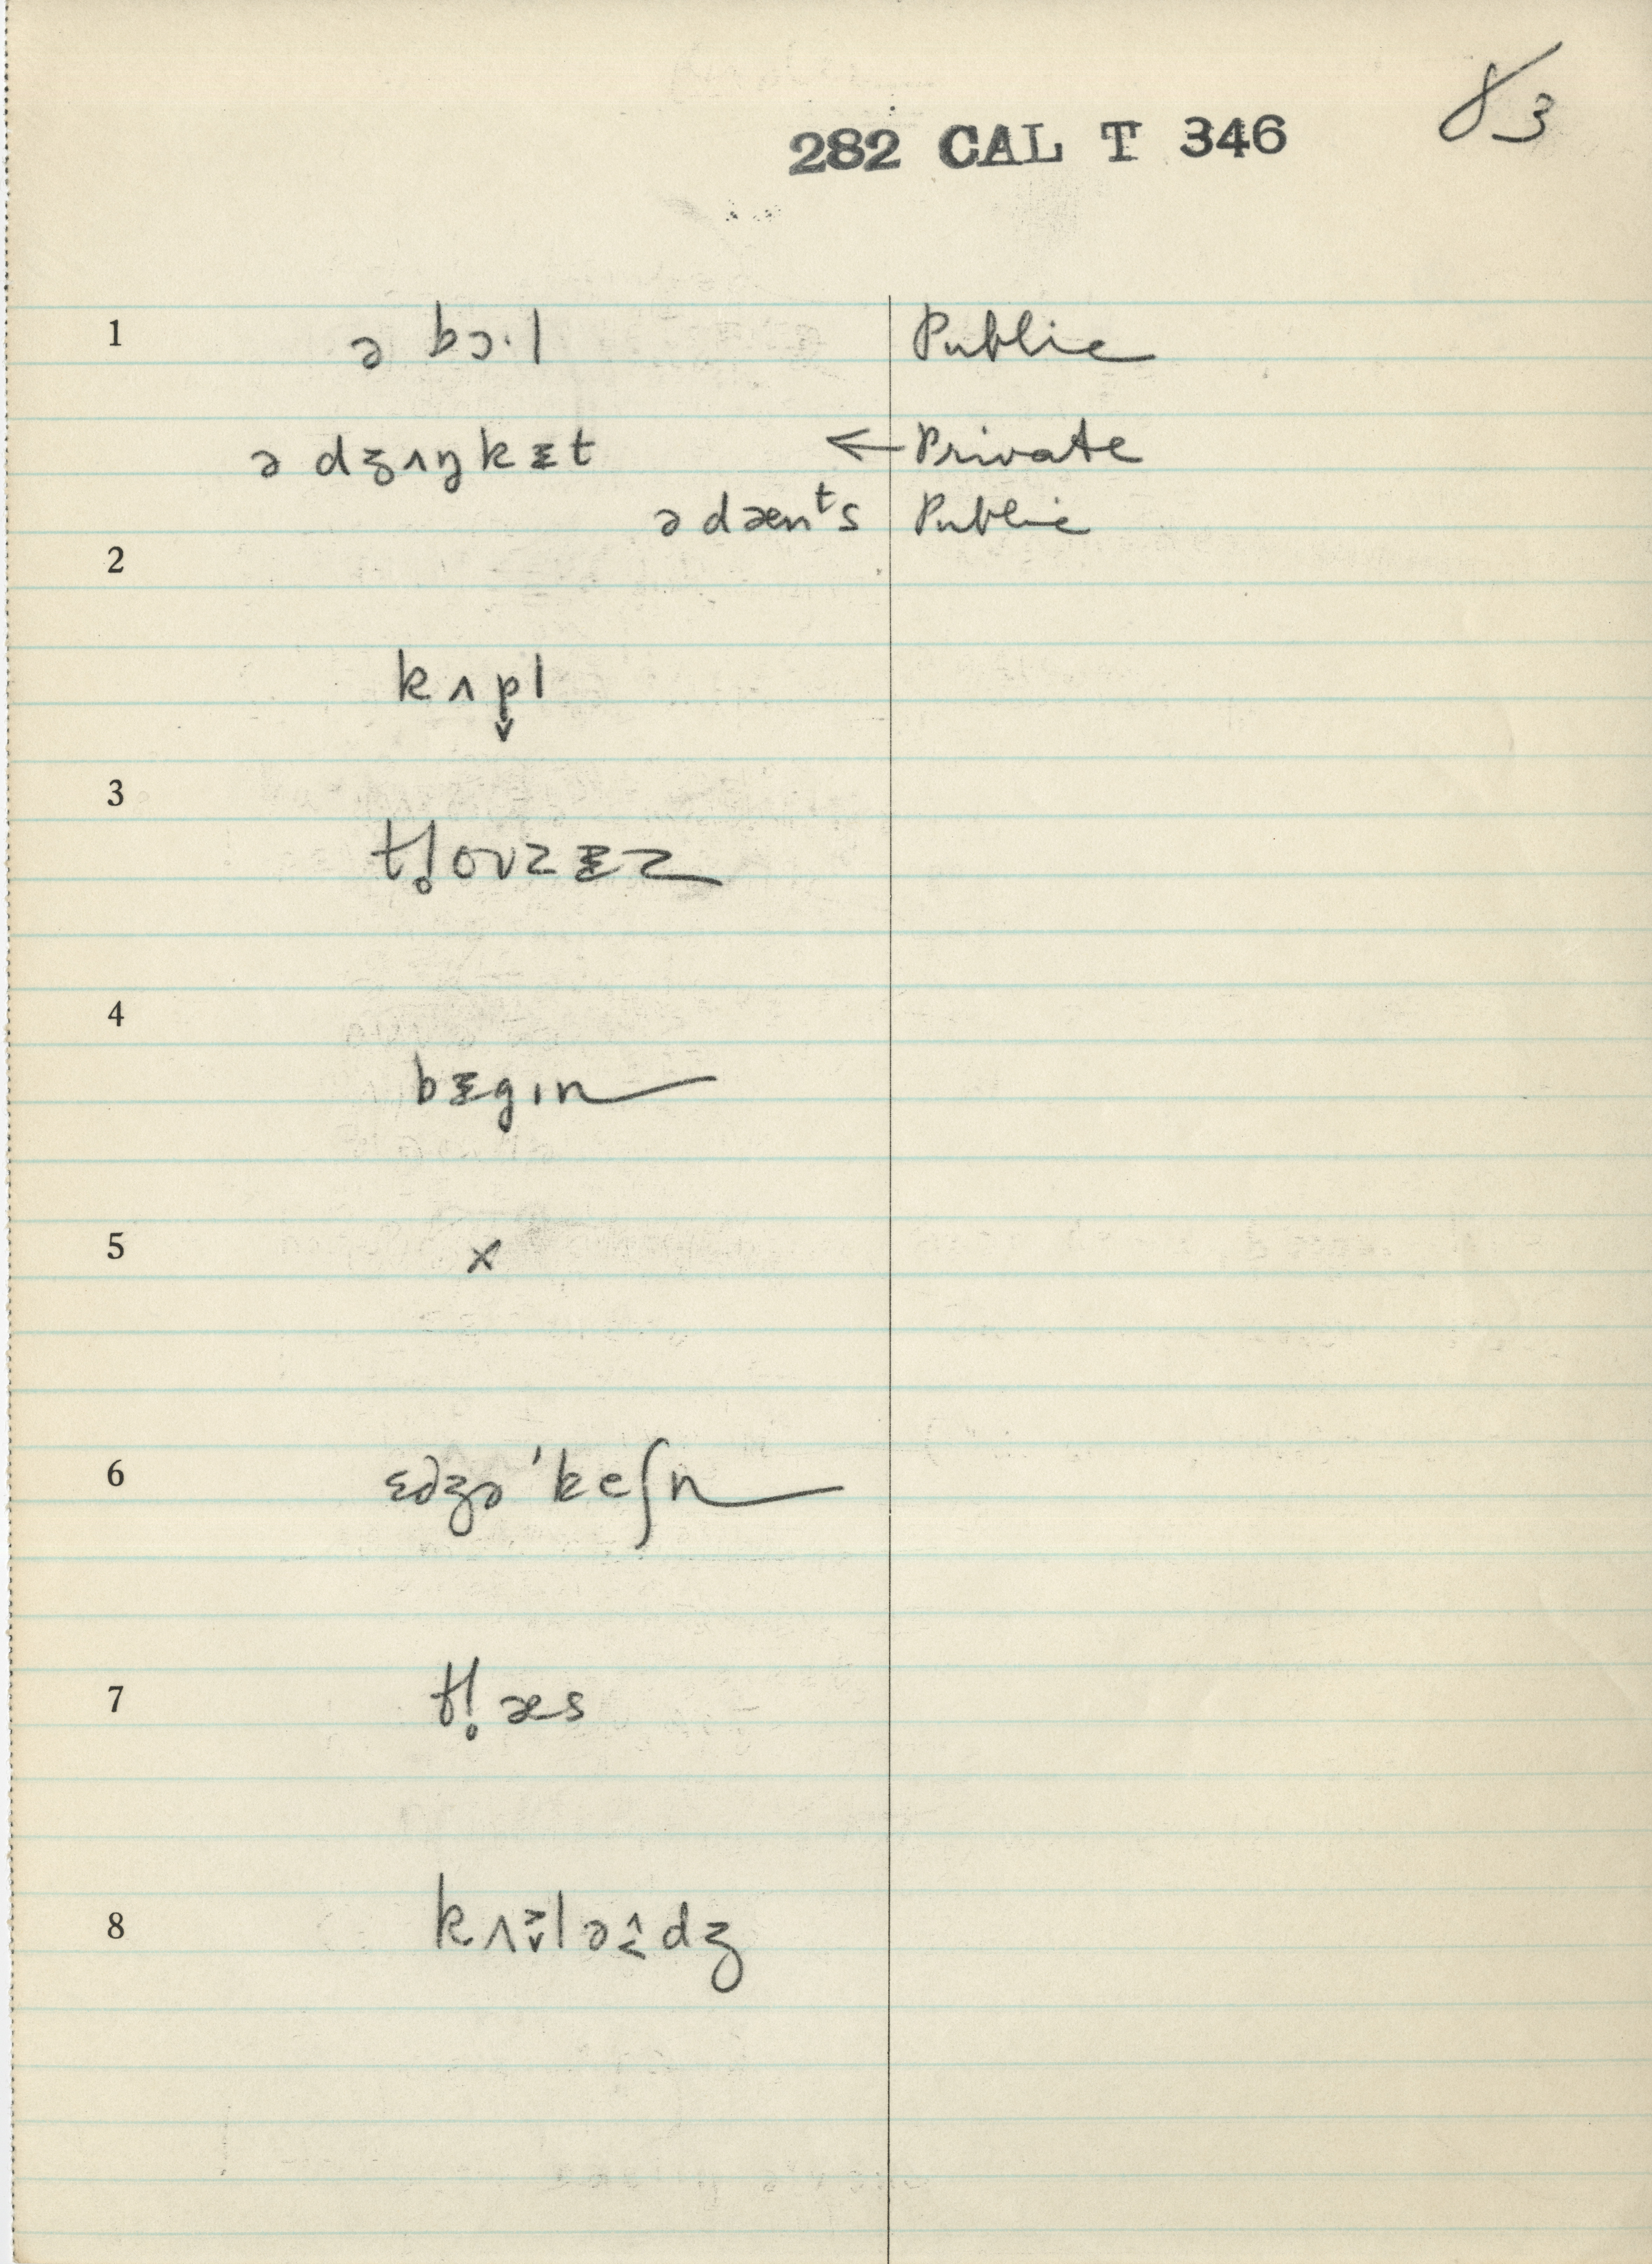 83
282 CAL T 346
1 ə bɔ·l Public
ə dʒʌŋkᵻt ← Private
ə dænᵗs Public
2
kʌp̬l
3
tl̥ouzᵻz
4
bᵻgɪn
5
x
6 ɛdʒə'keʃn
7 tl̥æs
8 kʌ lə dʒ